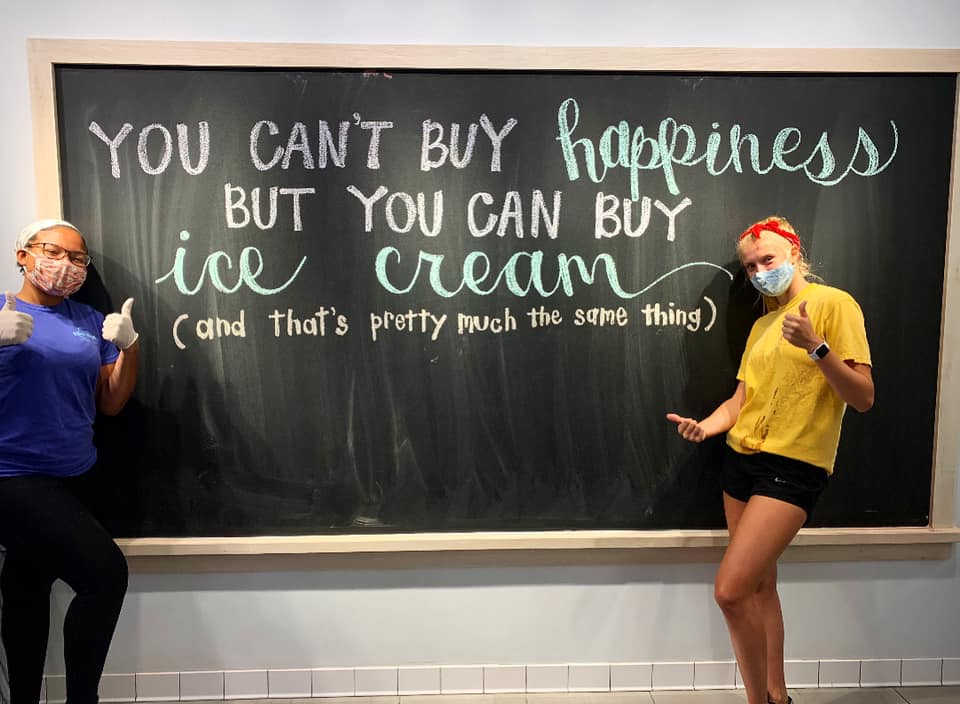 YOU CAN'T BUY happiness
BUT YOU CAN BUY
ice cream
(and that's pretty much the same thing)